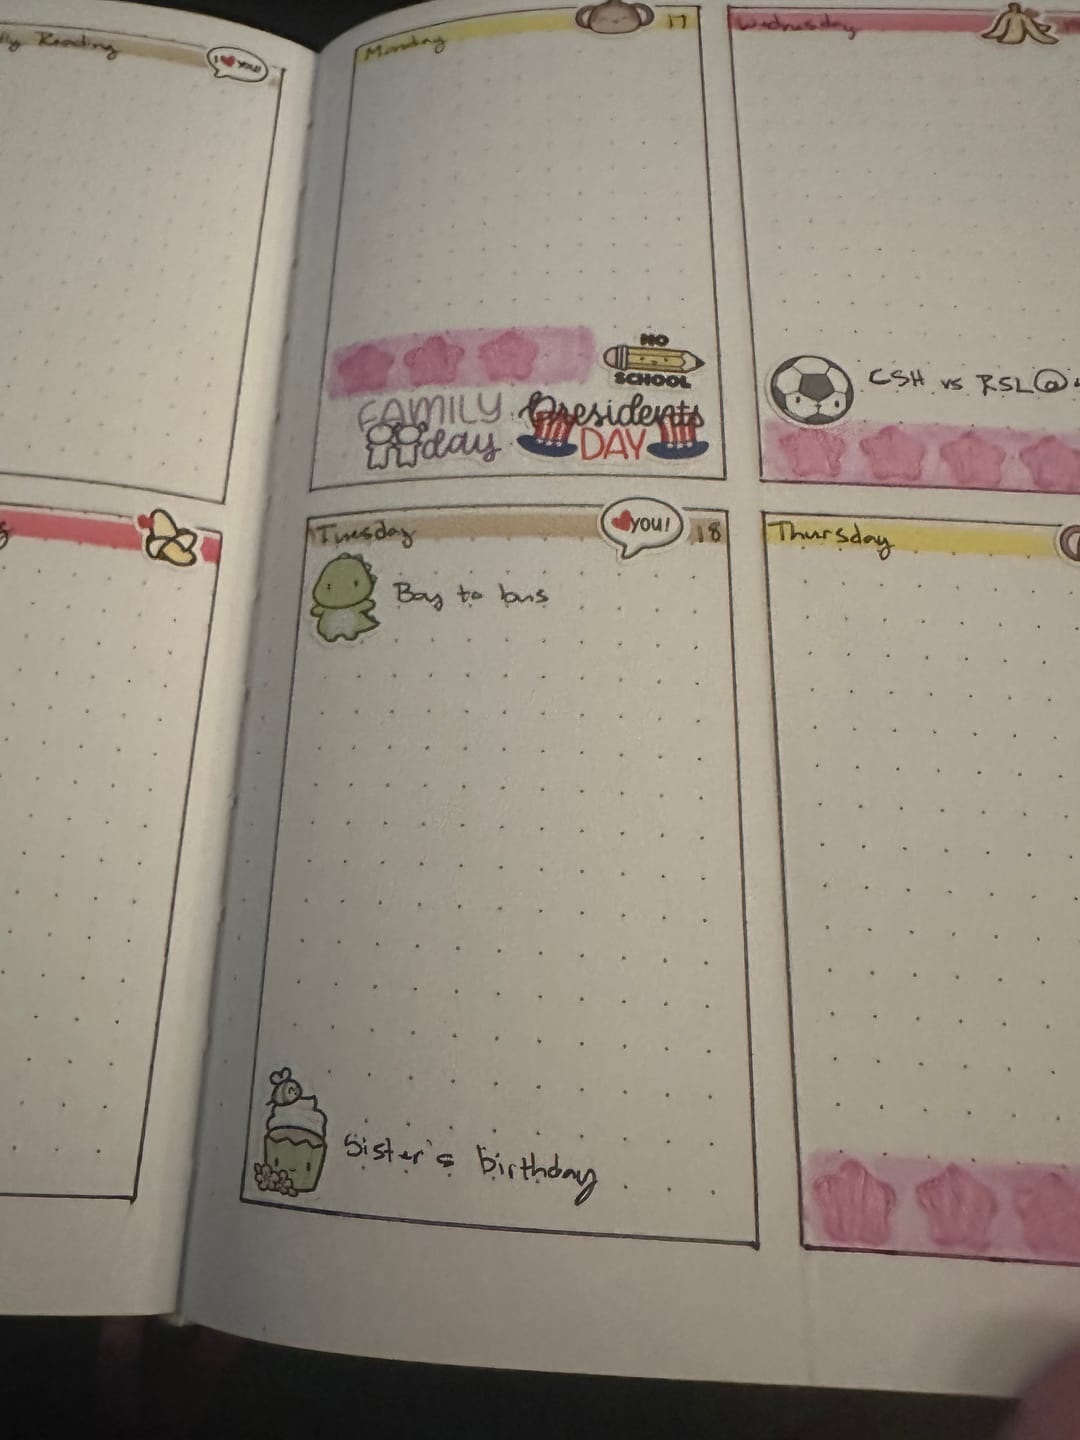 Reading
I ❤ YOU!
Monday 17
NO
SCHOOL
FAMILY
day
Presidents
DAY
Tuesday
❤you! 18
Boy to bus
Sister's birthday
Wednesday
CSH vs RSL@
Thursday